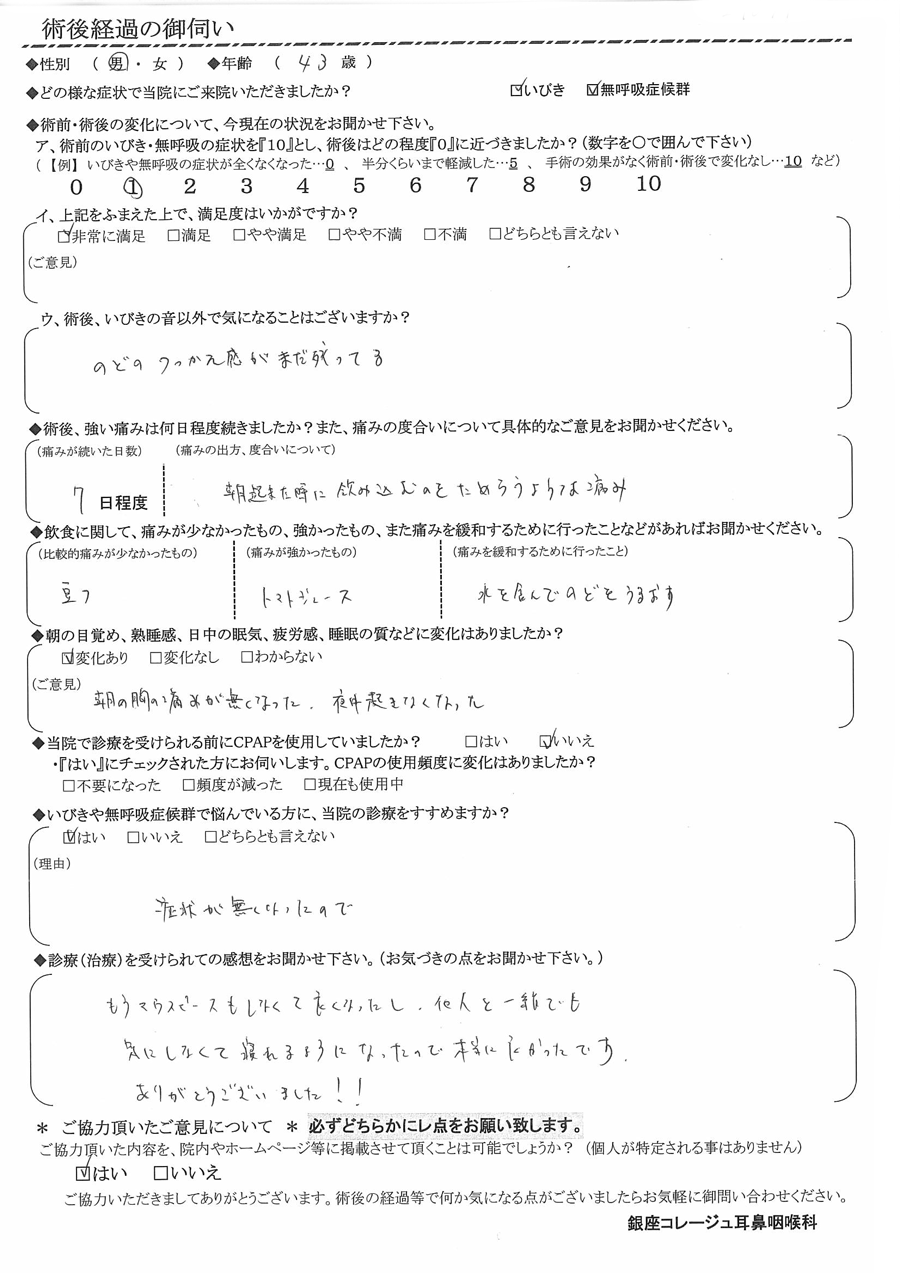 術後経過の御伺い
◆性別 ( 男 ・ 女 ) ◆年齢 ( 43 歳 )
◆どの様な症状で当院にご来院いただきましたか? ☑いびき ☑無呼吸症候群
◆術前・術後の変化について、今現在の状況をお聞かせ下さい。
ア、術前のいびき・無呼吸の症状を『10』とし、術後はどの程度『0』に近づきましたか?(数字を〇で囲んで下さい)
(【例】いびきや無呼吸の症状が全くなくなった…0 、 半分くらいまで軽減した…5 、 手術の効果がなく術前・術後で変化なし…10 など)
0 ① 2 3 4 5 6 7 8 9 10
イ、上記をふまえた上で、満足度はいかがですか?
☑非常に満足 □満足 □やや満足 □やや不満 □不満 □どちらとも言えない
(ご意見)
ウ、術後、いびきの音以外で気になることはございますか?
のどのつっかえ感がまだ残ってる
◆術後、強い痛みは何日程度続きましたか?また、痛みの度合いについて具体的なご意見をお聞かせください。
(痛みが続いた日数) (痛みの出方、度合いについて)
7 日程度 朝起きた時に飲み込むのをためらうような痛み
◆飲食に関して、痛みが少なかったもの、強かったもの、また痛みを緩和するために行ったことなどがあればお聞かせください。
(比較的痛みが少なかったもの) (痛みが強かったもの) (痛みを緩和するために行ったこと)
豆フ トマトジュース 水を含んでのどをうるおす
◆朝の目覚め、熟睡感、日中の眠気、疲労感、睡眠の質などに変化はありましたか?
☑変化あり □変化なし □わからない
(ご意見)
朝の胸の痛みが無くなった. 夜中起きなくなった
◆当院で診療を受けられる前にCPAPを使用していましたか? □はい ☑いいえ
・『はい』にチェックされた方にお伺いします。CPAPの使用頻度に変化はありましたか?
□不要になった □頻度が減った □現在も使用中
◆いびきや無呼吸症候群で悩んでいる方に、当院の診療をすすめますか?
☑はい □いいえ □どちらとも言えない
(理由)
症状が無くなったので
◆診療(治療)を受けられての感想をお聞かせ下さい。(お気づきの点をお聞かせ下さい。)
もうマウスピースもしなくて良くなったし. 他人と一緒でも
気にしなくて寝れるようになったので本当に良かったです.
ありがとうございました!!
* ご協力頂いたご意見について * 必ずどちらかにレ点をお願い致します。
ご協力頂いた内容を、院内やホームページ等に掲載させて頂くことは可能でしょうか? (個人が特定される事はありません)
☑はい □いいえ
ご協力いただきましてありがとうございます。術後の経過等で何か気になる点がございましたらお気軽に御問い合わせください。
銀座コレージュ耳鼻咽喉科